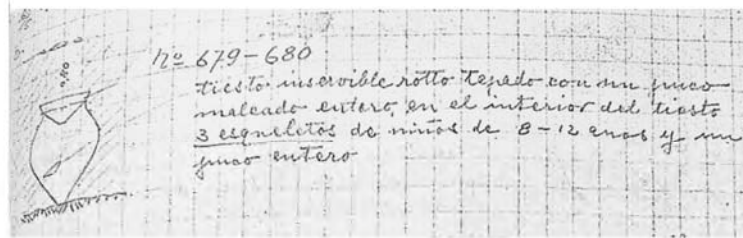 nº 679-680
tiesto inservible rotto tepado con un puco
malcado entero, en el interior del tiesto
3 esqueletos de niños de 8-12 anos y un
puco entero